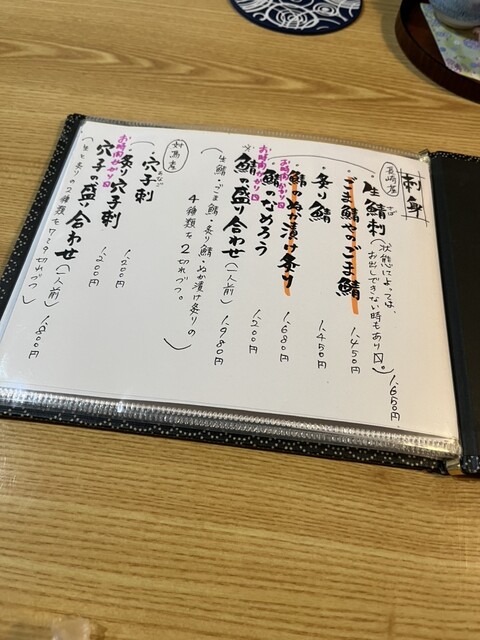 刺身
長崎産
生鯖刺
さば
(状態によっては、
お出しできない時もあり〼。)
1,650円
ごま鯖やのごま鯖
1,450円
炙り鯖
1,450円
鯖のぬか漬け炙り
1,680円
お時間かかり〼
鯖のなめろう
1,200円
お時間かかり〼
鯖の盛り合わせ(一人前)
1,980円
(生鯖・ごま鯖・炙り鯖・ぬか漬け炙りの
4種類を2切れづつ。)
対馬産
穴子刺
あなご
1,200円
お時間かかり〼
炙り穴子刺
1,200円
穴子の盛り合わせ(一人前)
1,800円
(生と炙りの2種類を
切れづつ)